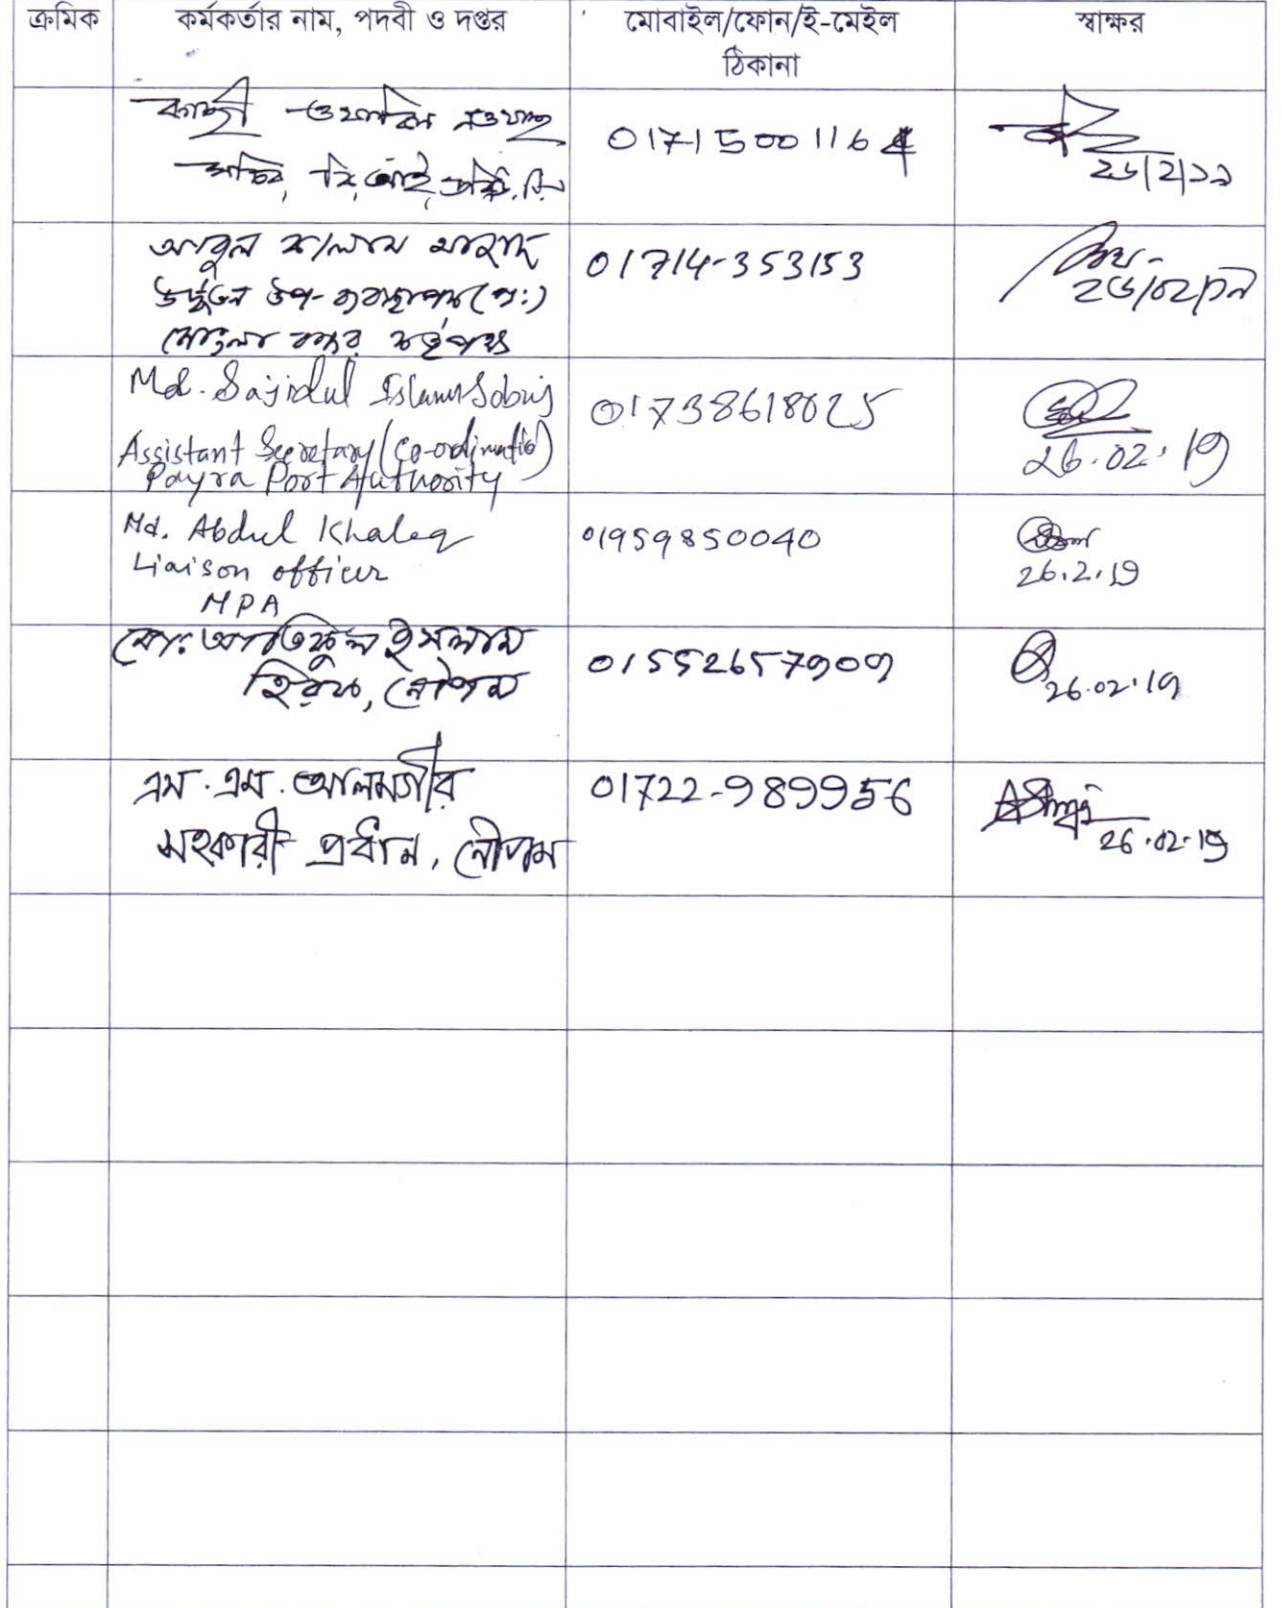 ক্রমিক কর্মকর্তার নাম, পদবী ও দপ্তর মোবাইল/ফোন/ই-মেইল স্বাক্ষর
ঠিকানা
কাজী
01715001164
২৬/2/১৯
আবুল কালাম আজাদ
উর্দ্ধতন উপ-ব্যবস্থাপক
মোংলা বন্দর কর্তৃপক্ষ
01714-353153
২৬/০২/১৯
Md. Sajidul Islam Sobuj
Assistant Secretary (Co-ordination)
Payra Port Authority
01738618625
26.02.19
Md. Abdul Khaleq
Liaison officer
MPA
01959850040
26.2.19
মোঃ আতিকুল ইসলাম
হিরক, নৌপম
01552657909
26.02.19
এম. এম. আলমগীর
সহকারী প্রধান, নৌপম
01722-989956
26.02.19